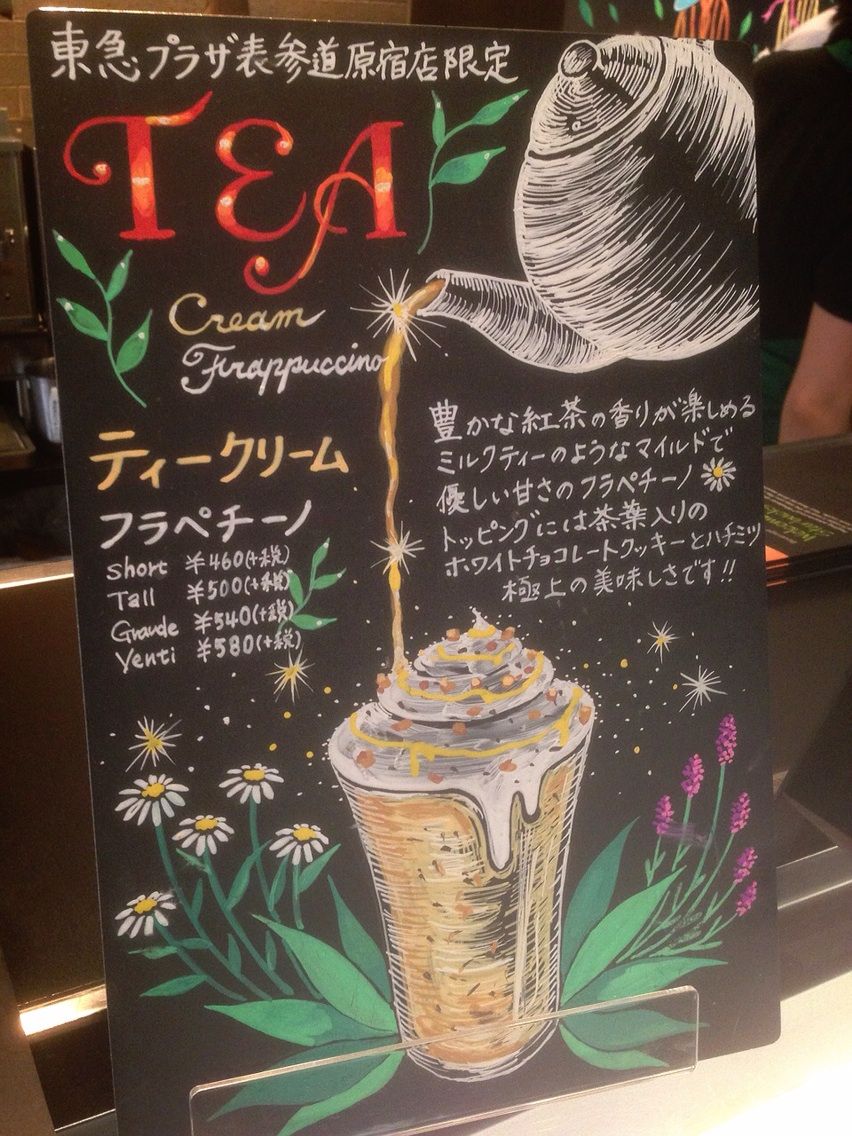 東急プラザ表参道原宿店限定
TEA
Cream
Frappuccino
ティークリーム
フラペチーノ
short ¥460(+税)
Tall ¥500(+税)
Grande ¥540(+税)
Venti ¥580(+税)
豊かな紅茶の香りが楽しめる
ミルクティーのようなマイルドで
優しい甘さのフラペチーノ
トッピングには茶葉入りの
ホワイトチョコレートクッキーとハチミツ
極上の美味しさです!!